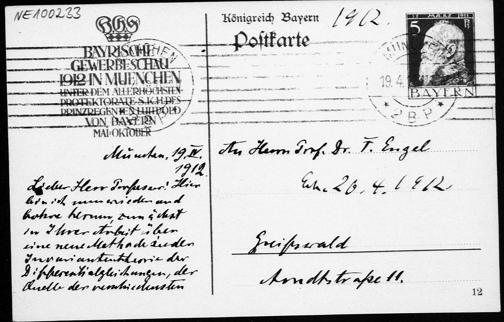 NE100233
Königreich Bayern
1912.
Postkarte
12 MÄRZ 1911
5
BAYERN
BAYRISCHE
GEWERBESCHAU
1912 IN MUENCHEN
UNTER DEM ALLERHÖCHSTEN
PROTEKTORATE S.K.H.DES
PRINZREGENTEN LUITPOLD
VON BAYERN
MAI-OKTOBER
MÜNCHEN
19.4
* 2 B.P. *
München, 19.IV.
1912
Lieber Herr Professor! Hier
bin ich nun wieder und
bohre herum, zunächst
in Ihrer Arbeit über
eine neue Methode in der
Invariantentheorie der
Differentialgleichungen, der
Quelle der verschiedensten
An Herrn Prof. Dr. F. Engel
Erh. 20.4.1912
Greifswald
Arndtstraße 11.
12